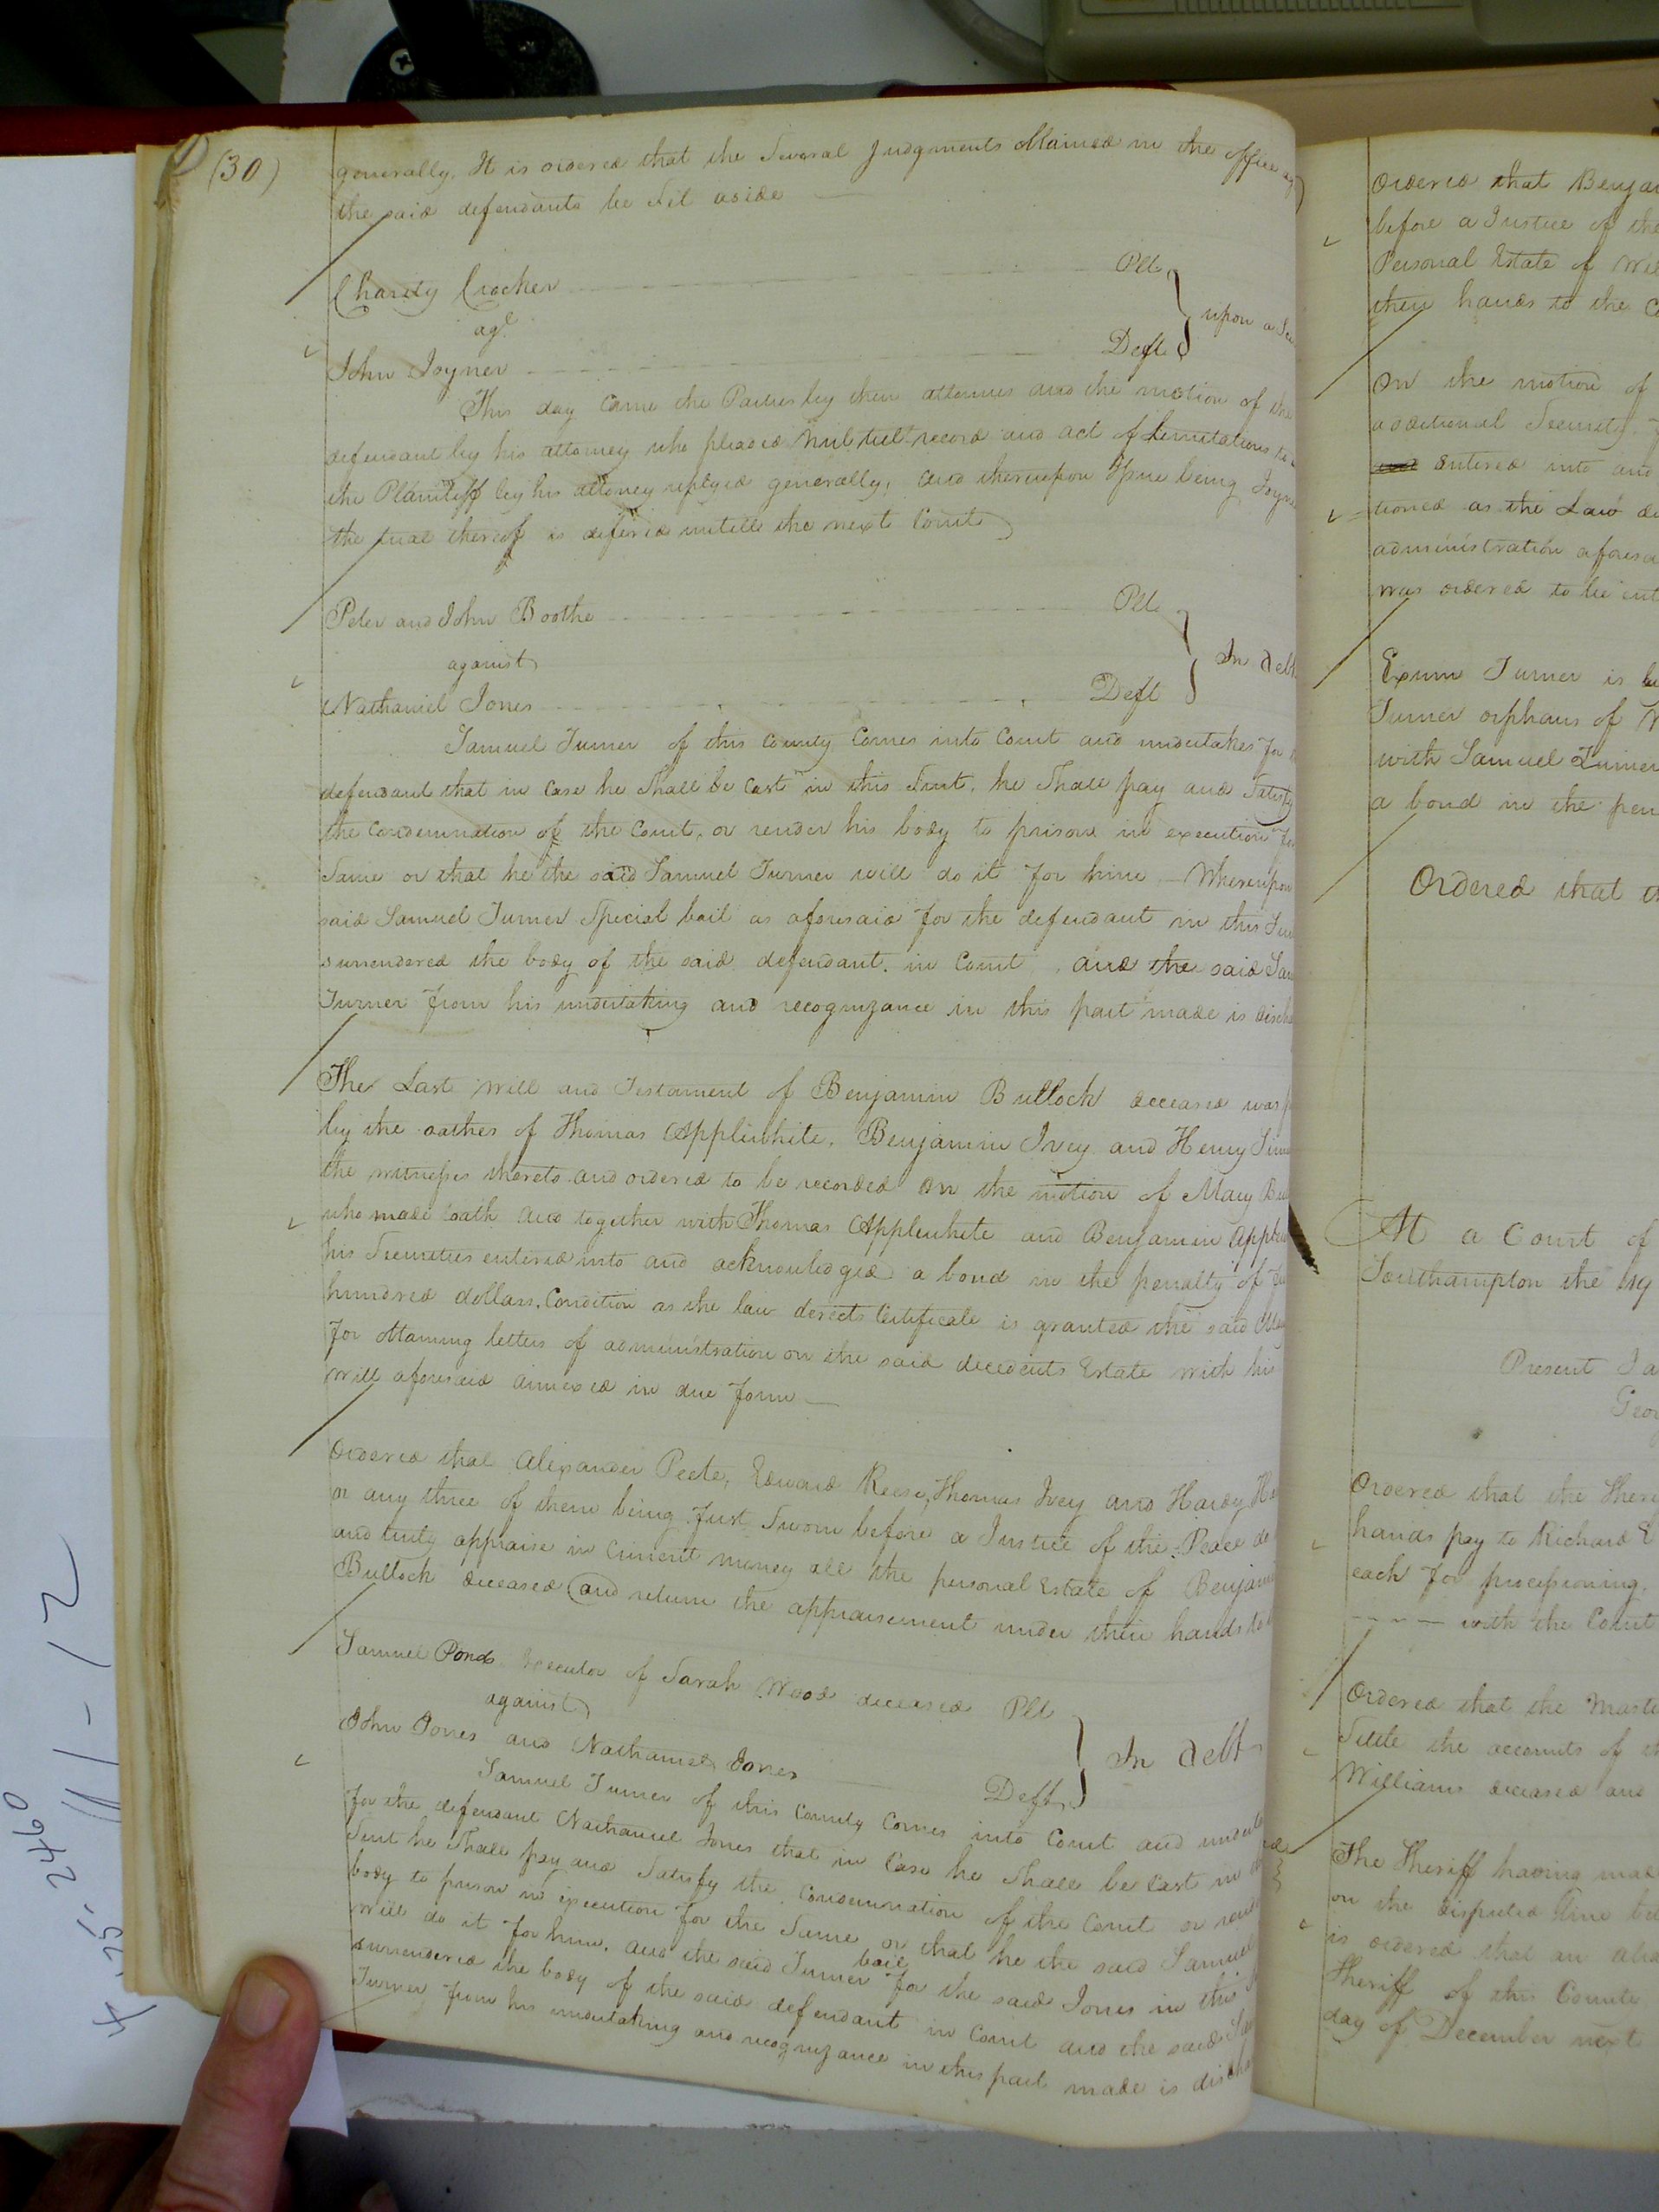 (30)
generally. It is ordered that the Several Judgments obtained in the office ag
the said defendants be Set aside
Charity Crocker Plt
agt
John Joyner Deft
upon a Sci
This day Came the Parties by their attornies and the motion of the
defendant by his attorney who pleaded Nul tiel record and act of limitations to
the Plaintiff by his attorney replyed generally, and thereupon Issue being Joyne
the trial thereof is defered untill the next Court
Peter and John Boothe Plt
against
Nathaniel Jones Deft
In debt
Samuel Turner of this County Comes into Court and undertakes for
defendant that in Case he Shall be Cast in this Suit, he Shall pay and Satisfy
the Condemnation of the Court, or render his body to prison in execution for
Same or that he the said Samuel Turner will do it for him Whereupon
said Samuel Turner Special bail as aforesaid for the defendant in this Sui
surrendered the body of the said defendant in Court, and the said Sam
Turner from his undertaking and recognizance in this part made is discha
The Last Will and Testament of Benjamin Bullock deceased was
by the oathes of Thomas Applewhite, Benjamin Ivey and Henry Sim
the witnesses thereto and ordered to be recorded on the motion of Mary Bu
who made oath and together with Thomas Applewhite and Benjamin Applew
his Securities entered into and acknowledged a bond in the penalty of
hundred dollars, Condition as the law derects Certificate is granted the said Ma
for obtaining letters of administration on the said decedents Estate with his
will aforesaid annexed in due form
Ordered that Alexander Peete, Edward Reese, Thomas Ivey and Hardy
or any three of them being first Sworn before a Justice of the Peace do
and truly appraise in Current money all the personal Estate of Benjami
Bullock deceased and return the appraisement under their hands to
Samuel Pond Executor of Sarah Wood deceased Plt
against
John Jones and Nathaniel Jones Deft
In debt
Samuel Turner of this County Comes into Court and undert
for the defendant Nathaniel Jones that in Case he Shall be Cast in
Suit he Shall pay and Satisfy the Condemnation of the Court or rend
body to prison in execution for the Same or that he the said Samuel
will do it for him, and the said Turner bail for the said Jones in this
surrendered the body of the said defendant in Court and the said Sam
Turner from his undertaking and recognizance in this part made is discha
Ordered that Benja
before a Justice of the
Personal Estate of
their hands to the C
On the motion of
additional Security
Entered into and
tioned as the Law
administration aforesa
was ordered to be ent
Exum Turner is
Turner orphans of
with Samuel Turner
a bond in the pen
Ordered that th
At a Court of
Southampton the
Present Ja
Geor
Ordered that the Sheri
hands pay to Richard
each for processioning
with the Court
Ordered that the Maste
Settle the accounts of th
Williams deceased and
The Sheriff having mad
on the disputed line be
is ordered that an
Sheriff of this County
day of December next
2460
11-12